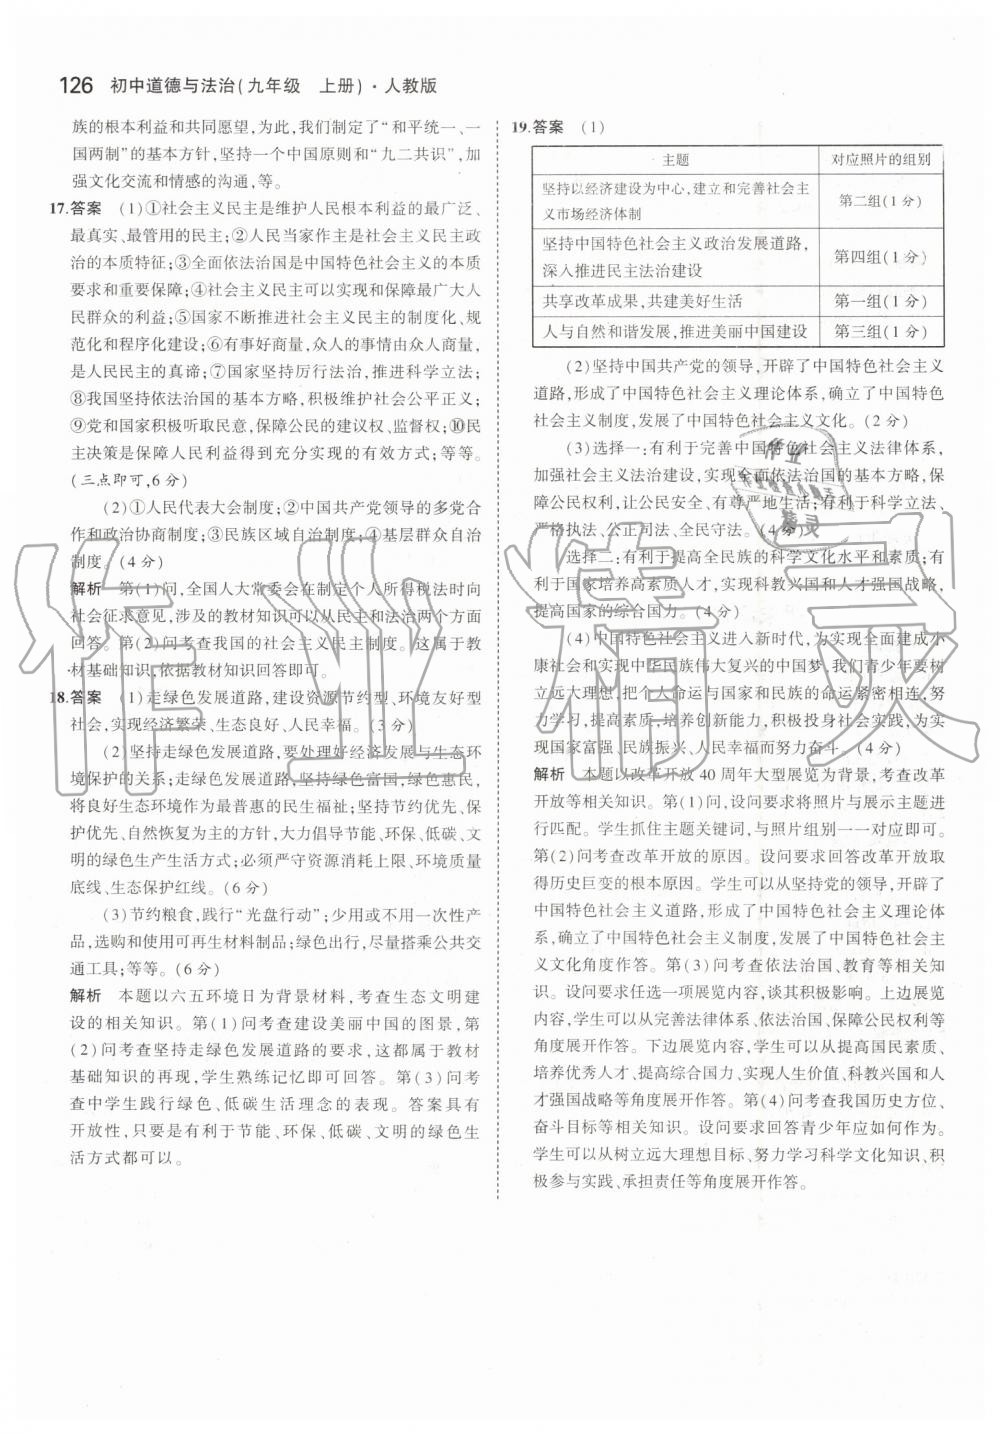 126 初中道德与法治(九年级 上册)·人教版
族的根本利益和共同愿望,为此,我们制定了“和平统一、一
国两制”的基本方针,坚持一个中国原则和“九二共识”,加
强文化交流和情感的沟通,等。
17.答案 (1)①社会主义民主是维护人民根本利益的最广泛、
最真实、最管用的民主;②人民当家作主是社会主义民主政
治的本质特征;③全面依法治国是中国特色社会主义的本质
要求和重要保障;④社会主义民主可以实现和保障最广大人
民群众的利益;⑤国家不断推进社会主义民主的制度化、规
范化和程序化建设;⑥有事好商量,众人的事情由众人商量,
是人民民主的真谛;⑦国家坚持厉行法治,推进科学立法;
⑧我国坚持依法治国的基本方略,积极维护社会公平正义;
⑨党和国家积极听取民意,保障公民的建议权、监督权;⑩民
主决策是保障人民利益得到充分实现的有效方式;等等。
(三点即可,6分)
(2)①人民代表大会制度;②中国共产党领导的多党合
作和政治协商制度;③民族区域自治制度;④基层群众自治
制度。(4分)
解析 第(1)问,全国人大常委会在制定个人所得税法时向
社会征求意见,涉及的教材知识可以从民主和法治两个方面
回答。第(2)问考查我国的社会主义民主制度。这属于教
材基础知识,依据教材知识回答即可。
18.答案 (1)走绿色发展道路,建设资源节约型、环境友好型
社会,实现经济繁荣、生态良好、人民幸福。(3分)
(2)坚持走绿色发展道路,要处理好经济发展与生态环
境保护的关系;走绿色发展道路,坚持绿色富国,绿色惠民,
将良好生态环境作为最普惠的民生福祉;坚持节约优先、保
护优先、自然恢复为主的方针,大力倡导节能、环保、低碳、文
明的绿色生产生活方式;必须严守资源消耗上限、环境质量
底线、生态保护红线。(6分)
(3)节约粮食,践行“光盘行动”;少用或不用一次性产
品,选购和使用可再生材料制品;绿色出行,尽量搭乘公共交
通工具;等等。(6分)
解析 本题以六五环境日为背景材料,考查生态文明建
设的相关知识。第(1)问考查建设美丽中国的图景,第
(2)问考查坚持走绿色发展道路的要求,这都属于教材
基础知识的再现,学生熟练记忆即可回答。第(3)问考
查中学生践行绿色、低碳生活理念的表现。答案具有
开放性,只要是有利于节能、环保、低碳、文明的绿色生
活方式都可以。
19.答案 (1)
主题 对应照片的组别
坚持以经济建设为中心,建立和完善社会主
义市场经济体制 第二组(1分)
坚持中国特色社会主义政治发展道路,
深入推进民主法治建设 第四组(1分)
共享改革成果,共建美好生活 第一组(1分)
人与自然和谐发展,推进美丽中国建设 第三组(1分)
(2)坚持中国共产党的领导,开辟了中国特色社会主义
道路,形成了中国特色社会主义理论体系,确立了中国特色
社会主义制度,发展了中国特色社会主义文化。(2分)
(3)选择一:有利于完善中国特色社会主义法律体系,
加强社会主义法治建设,实现全面依法治国的基本方略,保
障公民权利,让公民安全、有尊严地生活;有利于科学立法、
严格执法、公正司法、全民守法。(4分)
选择二:有利于提高全民族的科学文化水平和素质;有
利于国家培养高素质人才,实现科教兴国和人才强国战略,
提高国家的综合国力。(4分)
(4)中国特色社会主义进入新时代,为实现全面建成小
康社会和实现中华民族伟大复兴的中国梦,我们青少年要树
立远大理想,把个人命运与国家和民族的命运紧密相连,努
力学习,提高素质,培养创新能力,积极投身社会实践,为实
现国家富强、民族振兴、人民幸福而努力奋斗。(4分)
解析 本题以改革开放40周年大型展览为背景,考查改革
开放等相关知识。第(1)问,设问要求将照片与展示主题进
行匹配。学生抓住主题关键词,与照片组别一一对应即可。
第(2)问考查改革开放的原因。设问要求回答改革开放取
得历史巨变的根本原因。学生可以从坚持党的领导,开辟了
中国特色社会主义道路,形成了中国特色社会主义理论体
系,确立了中国特色社会主义制度,发展了中国特色社会主
义文化角度作答。第(3)问考查依法治国、教育等相关知
识。设问要求任选一项展览内容,谈其积极影响。上边展览
内容,学生可以从完善法律体系、依法治国、保障公民权利等
角度展开作答。下边展览内容,学生可以从提高国民素质、
培养优秀人才、提高综合国力、实现人生价值、科教兴国和人
才强国战略等角度展开作答。第(4)问考查我国历史方位、
奋斗目标等相关知识。设问要求回答青少年应如何作为。
学生可以从树立远大理想目标、努力学习科学文化知识、积
极参与实践、承担责任等角度展开作答。
作业精灵